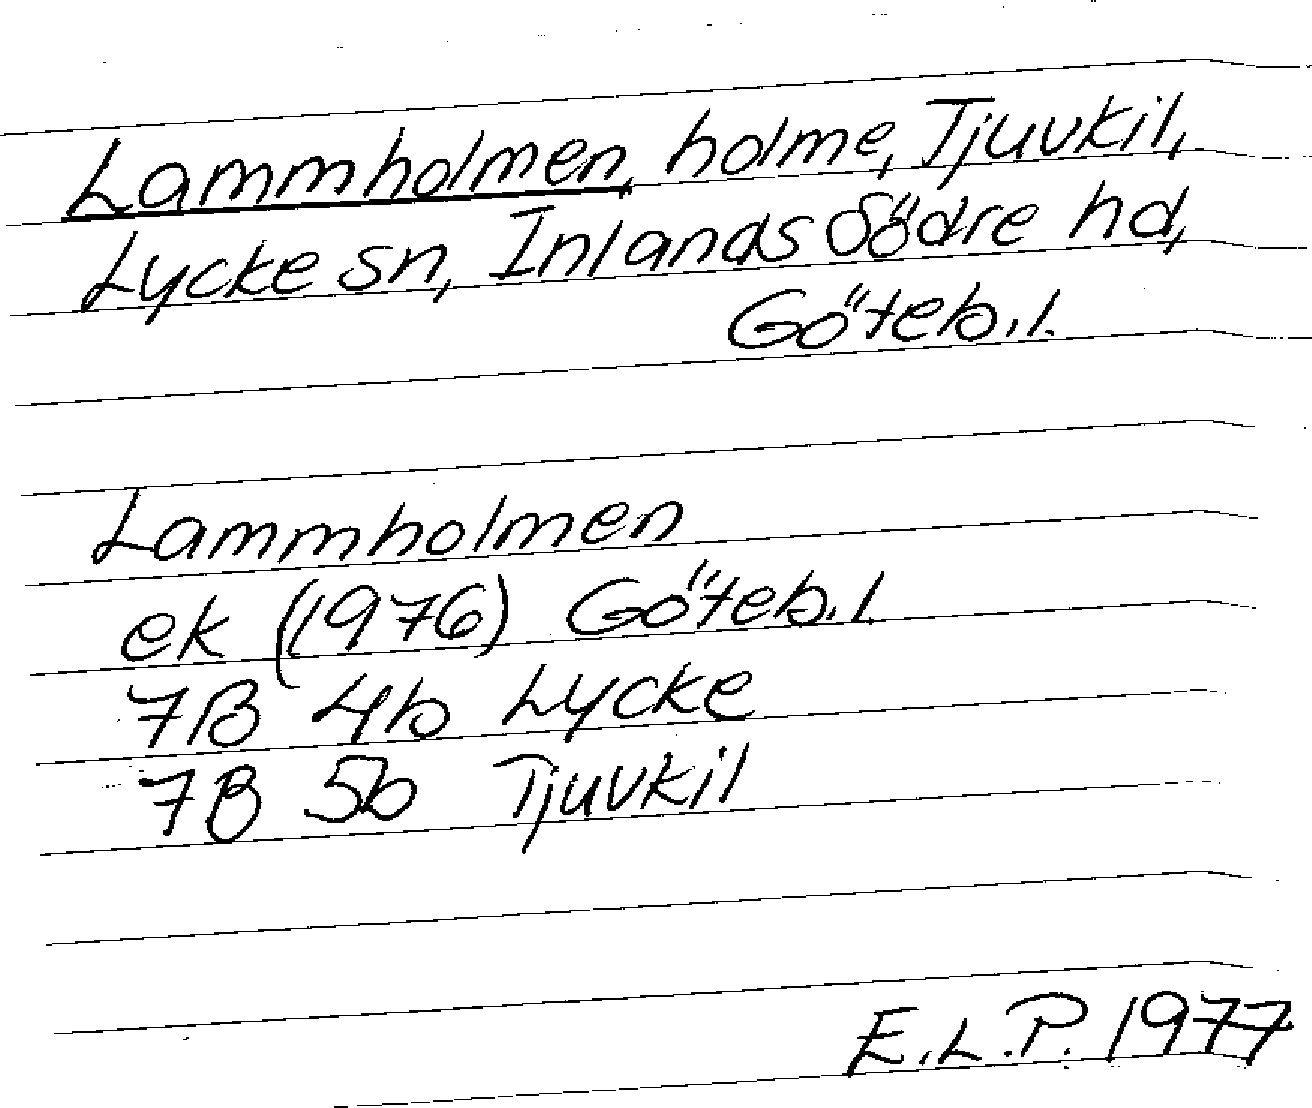 Lammholmen, holme, Tjuvkil,
Lycke sn, Inlands Södre hd,
Göteb. l.
Lammholmen
ek (1976) Göteb. l.
7B 4b Lycke
7B 5b Tjuvkil
E.L.P. 1977